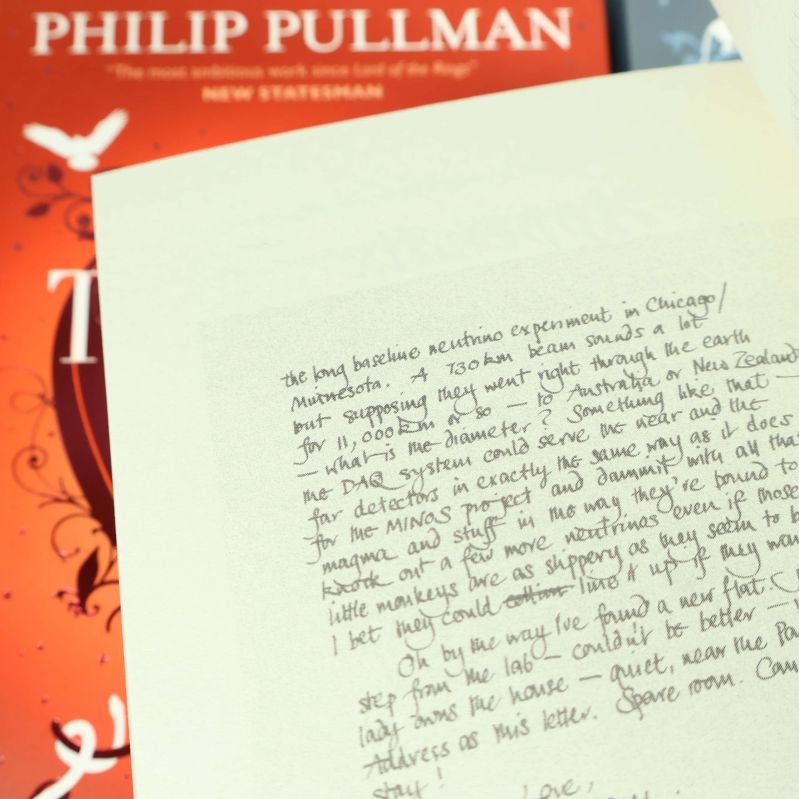 PHILIP PULLMAN
"The most ambitious work since Lord of the Rings"
NEW STATESMAN
T
the long baseline neutrino experiment in Chicago/
Minnesota. A 730km beam sounds a lot
but supposing they went right through the earth
for 11,000km or so — to Australia or New Zealand
— what is the diameter? Something like that —
the DAQ system could serve the near and the
far detectors in exactly the same way as it does
for the MINOS project and dammit with all that
magma and stuff in the way they're bound to
knock out a few more neutrinos even if those
little monkeys are as slippery as they seem to b
I bet they could line it up if they wan
Oh by the way I've found a new flat.
step from the lab — couldn't be better —
lady owns the house — quiet, near the Pa
Address as this letter. Spare room. Can
stay!
Love,